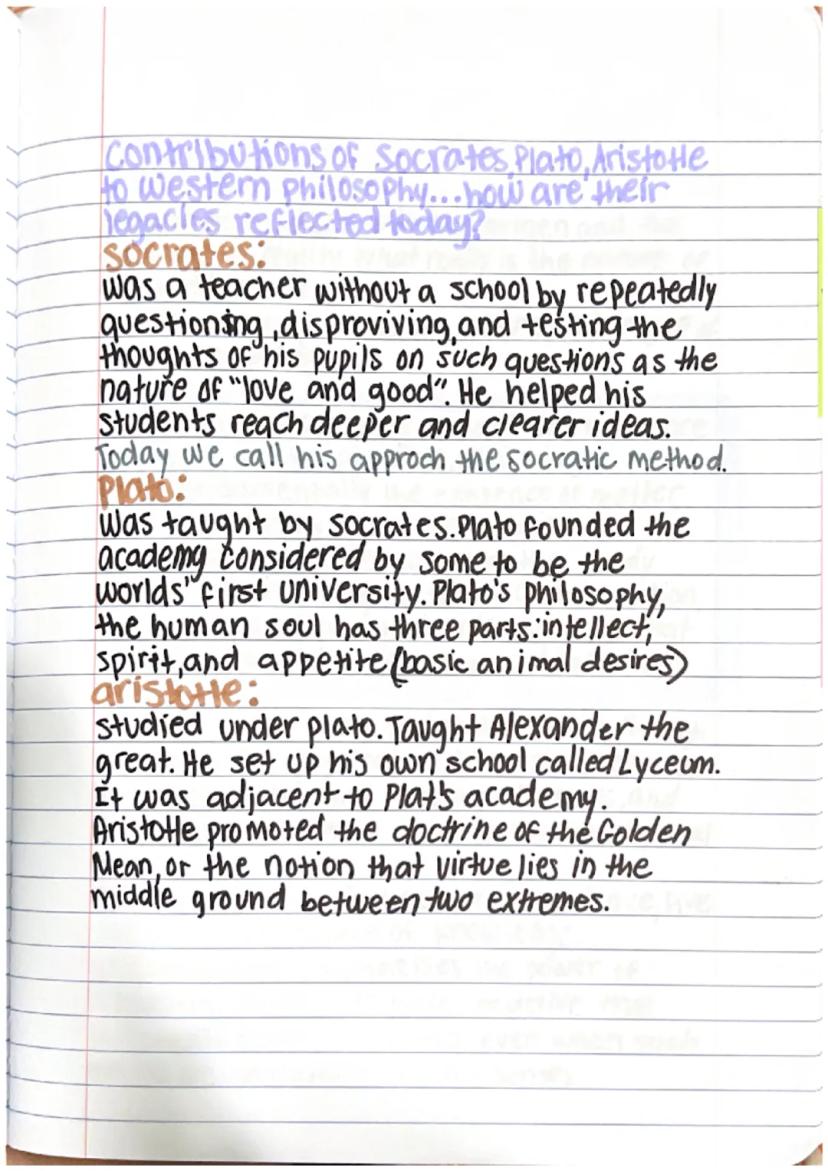 Contributions of Socrates, Plato, Aristotle
to western philosophy...how are their
legacies reflected today?
Socrates:
was a teacher without a school by repeatedly
questioning, disproviving, and testing the
thoughts of his pupils on such questions as the
nature of "love and good". He helped his
students reach deeper and clearer ideas.
Today we call his approch the socratic method.
Plato:
Was taught by socrates. Plato founded the
academy considered by some to be the
worlds" first university. Plato's philosophy,
the human soul has three parts: intellect,
spirit, and appetite (basic animal desires)
aristotle:
studied under plato. Taught Alexander the
great. He set up his own school called Lyceum.
It was adjacent to Plat's academy.
Aristotle promoted the doctrine of the Golden
Mean, or the notion that virtue lies in the
middle ground between two extremes.